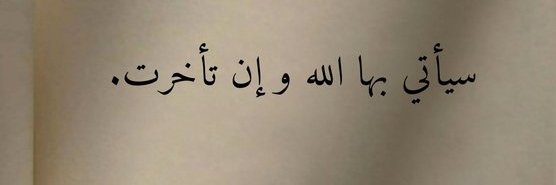 سيأتي بها الله و إن تأخرت.